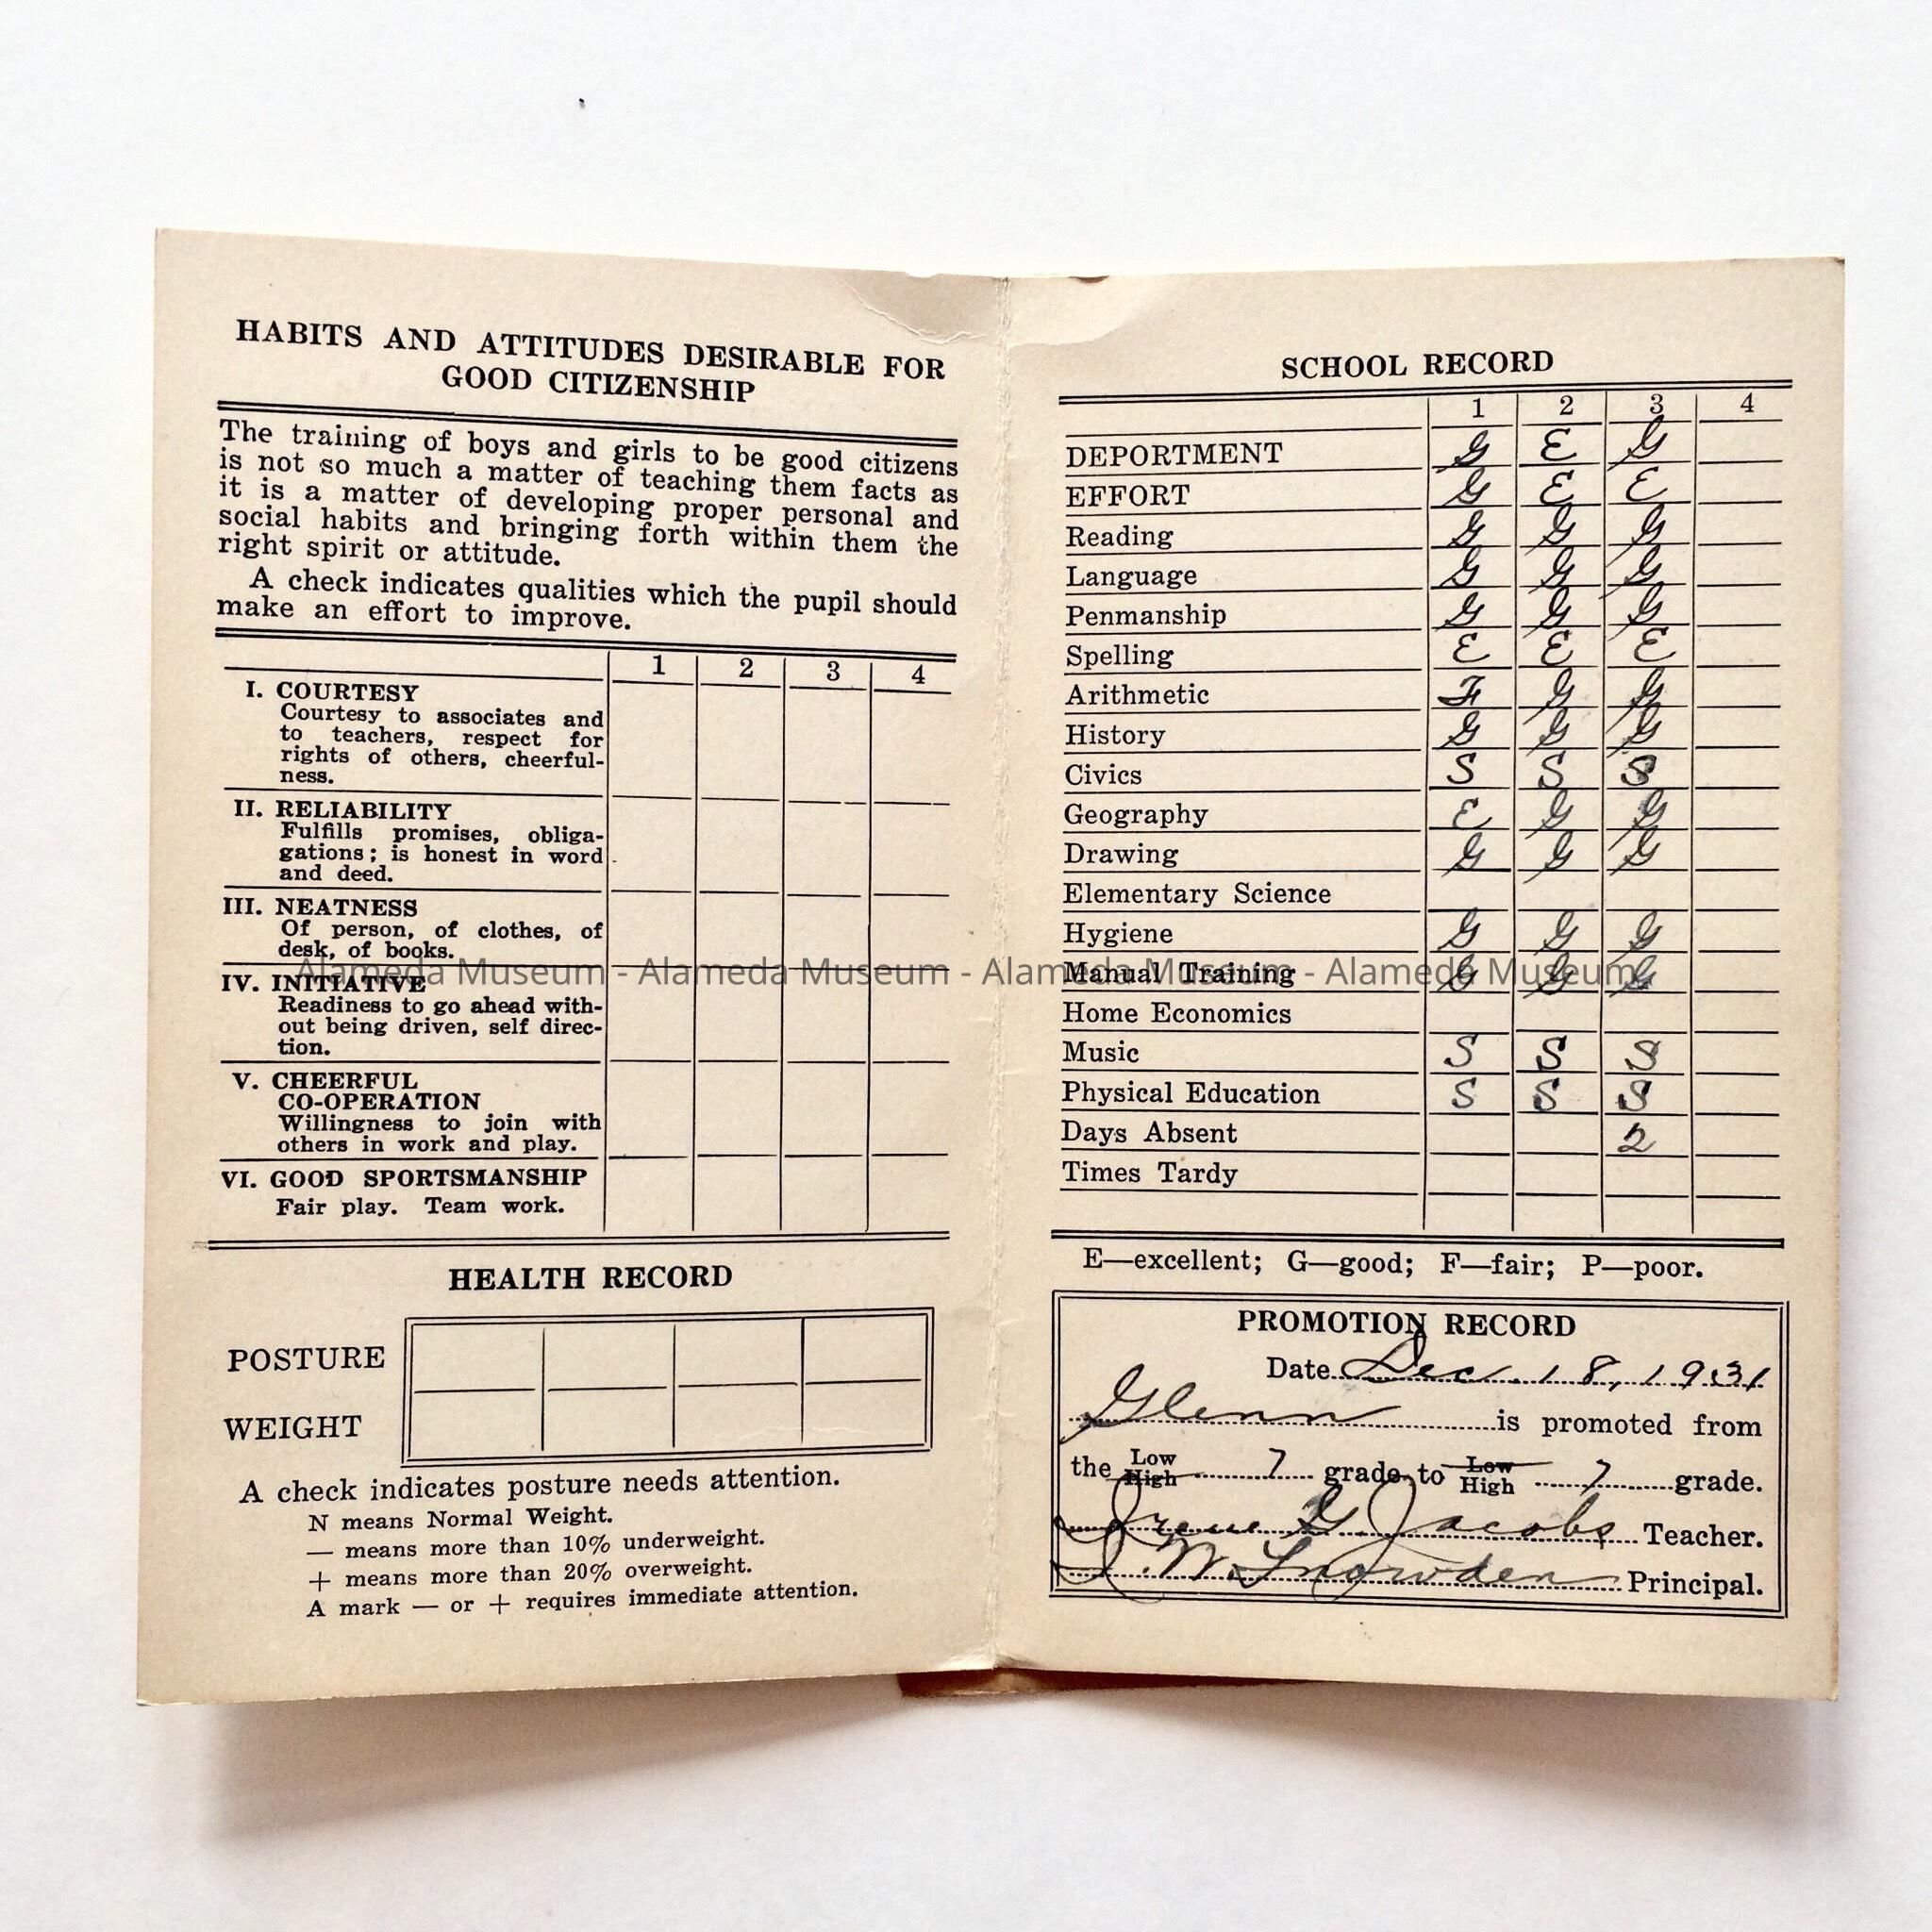 HABITS AND ATTITUDES DESIRABLE FOR
GOOD CITIZENSHIP
The training of boys and girls to be good citizens
is not so much a matter of teaching them facts as
it is a matter of developing proper personal and
social habits and bringing forth within them the
right spirit or attitude.
A check indicates qualities which the pupil should
make an effort to improve.
1 2 3 4
I. COURTESY
Courtesy to associates and
to teachers, respect for
rights of others, cheerful-
ness.
II. RELIABILITY
Fulfills promises, obliga-
gations; is honest in word
and deed.
III. NEATNESS
Of person, of clothes, of
desk, of books.
IV. INITIATIVE
Readiness to go ahead with-
out being driven, self direc-
tion.
V. CHEERFUL
CO-OPERATION
Willingness to join with
others in work and play.
VI. GOOD SPORTSMANSHIP
Fair play. Team work.
HEALTH RECORD
POSTURE
WEIGHT
A check indicates posture needs attention.
N means Normal Weight.
— means more than 10% underweight.
+ means more than 20% overweight.
A mark — or + requires immediate attention.
SCHOOL RECORD
1 2 3 4
DEPORTMENT G E G
EFFORT G E E
Reading G G G
Language G G G
Penmanship G G G
Spelling E E E
Arithmetic F G G
History G G G
Civics S S S
Geography E G G
Drawing G G G
Elementary Science
Hygiene G G G
Manual Training G G G
Home Economics
Music S S S
Physical Education S S S
Days Absent 2
Times Tardy
E—excellent; G—good; F—fair; P—poor.
PROMOTION RECORD
Date Dec. 18, 1931
Glenn is promoted from
the Low High 7 grade to Low High 7 grade.
Irene G. Jacobs Teacher.
D. W. Snowden Principal.
Alameda Museum - Alameda Museum - Alameda Museum - Alameda Museum